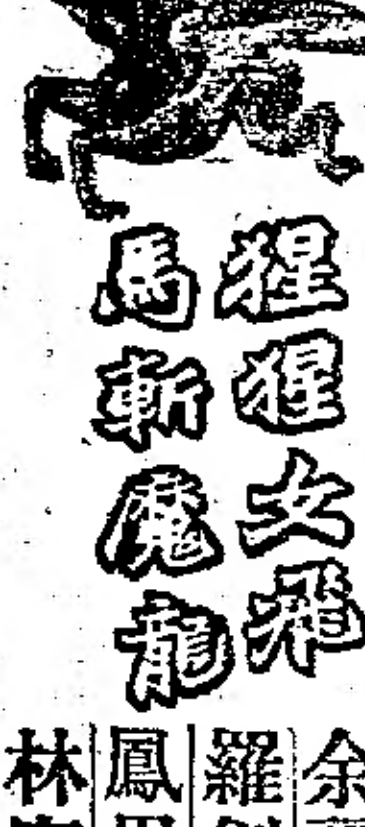 猩猩女飛
馬斬魔龍
余
羅
鳳
林